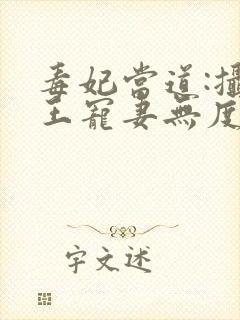 毒妃當道:攝
王寵妻無度
宇文述